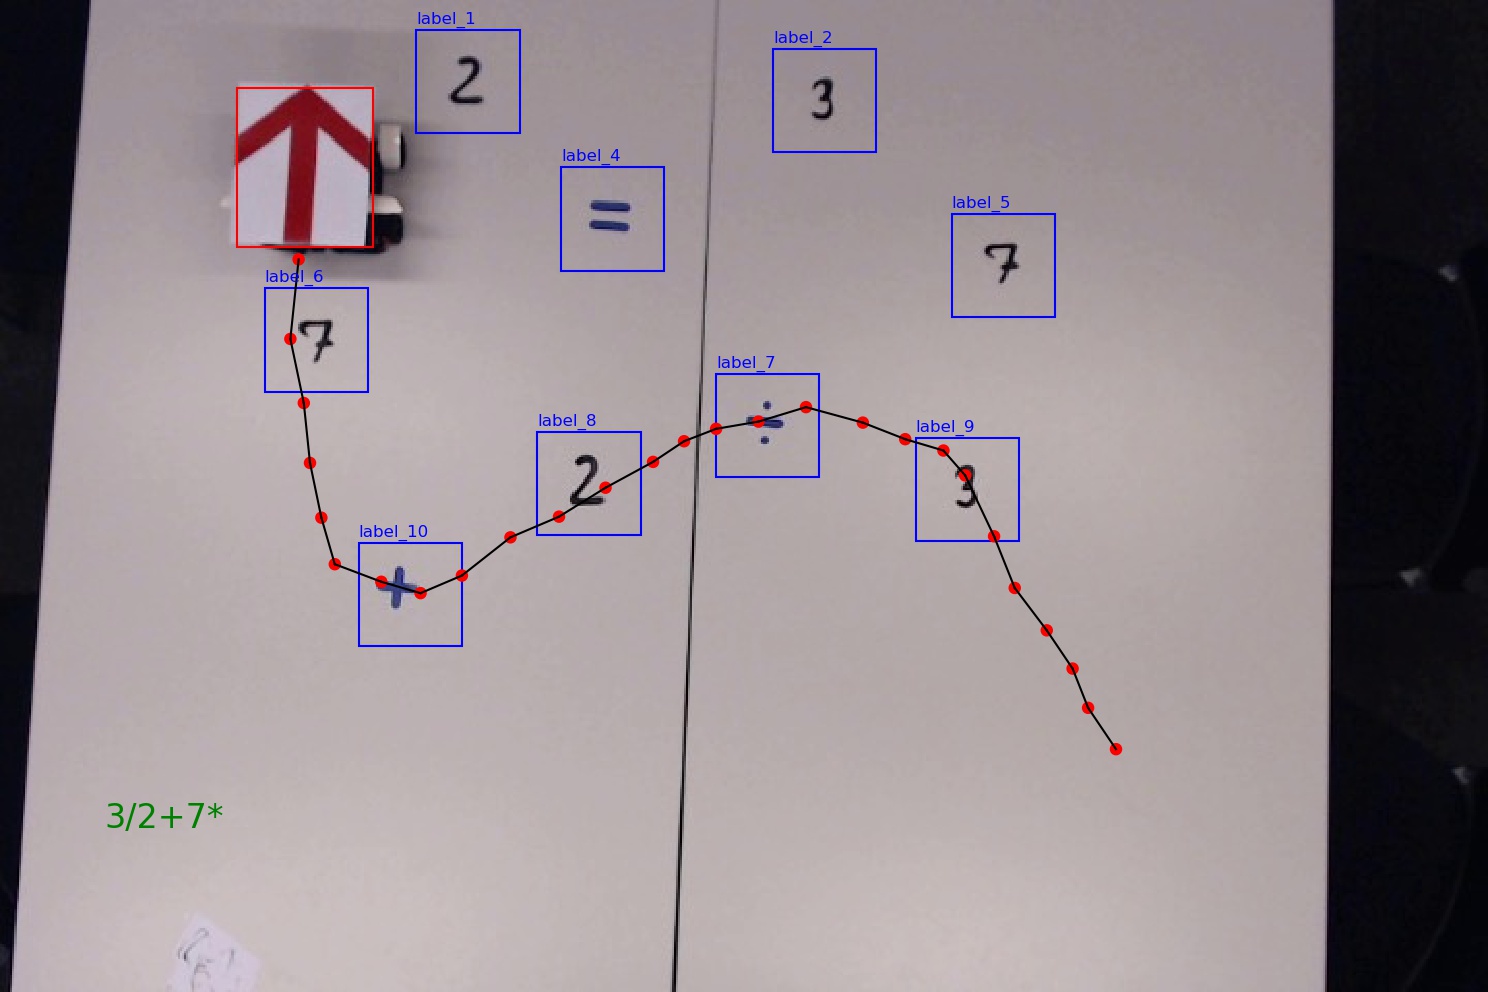 label_1
2
label_2
3
label_4
=
label_5
7
label_6
7
label_7
÷
label_8
2
label_9
3
label_10
+
3/2+7*